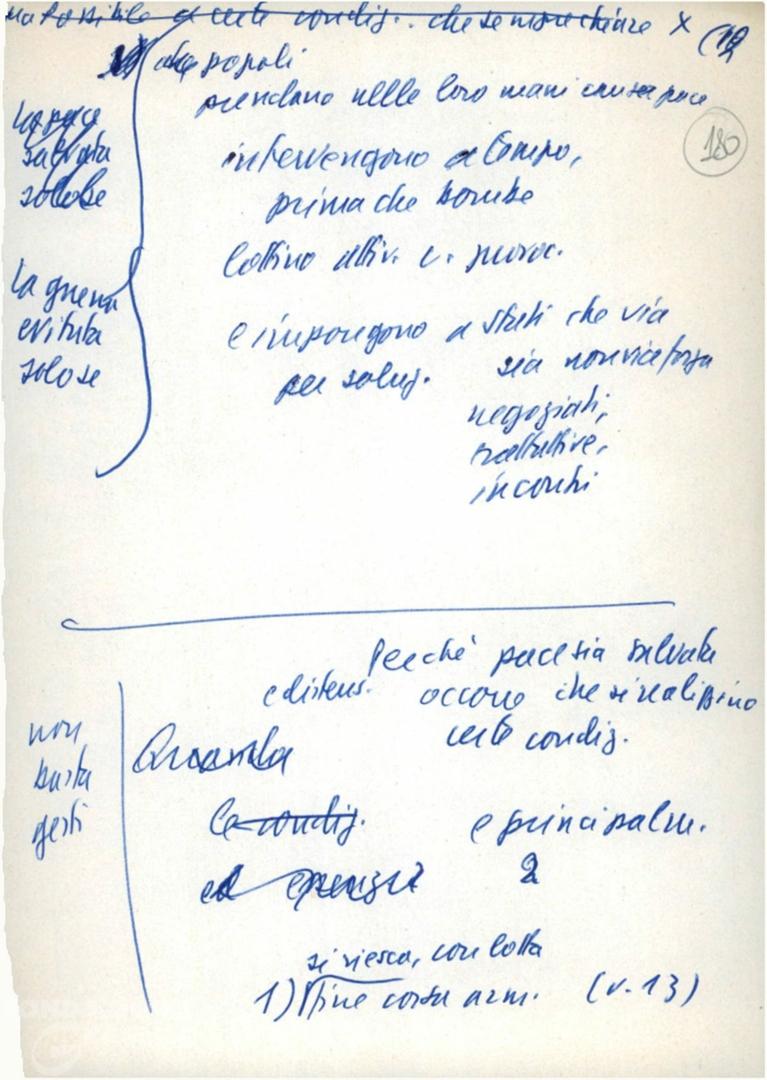 ma possibile a certe condiz. . che se
x (12
che popoli
prendano nelle loro mani causa pace
180
La pace
salvata
solo se
intervengono a tempo,
prima che bombe
lottino attiv. c.
La guerra
evitata
solo se
e impongono a stati che via
per soluz. sia non vice forza
negoziati,
trattative,
incontri
Perché pace sia salvata
e distens. occorre che si realizzino
certe condiz.
non
basta
gesti
le condiz. e principalm.
2
si riesca, con lotta
1) fine corsa arm. (v. 13)